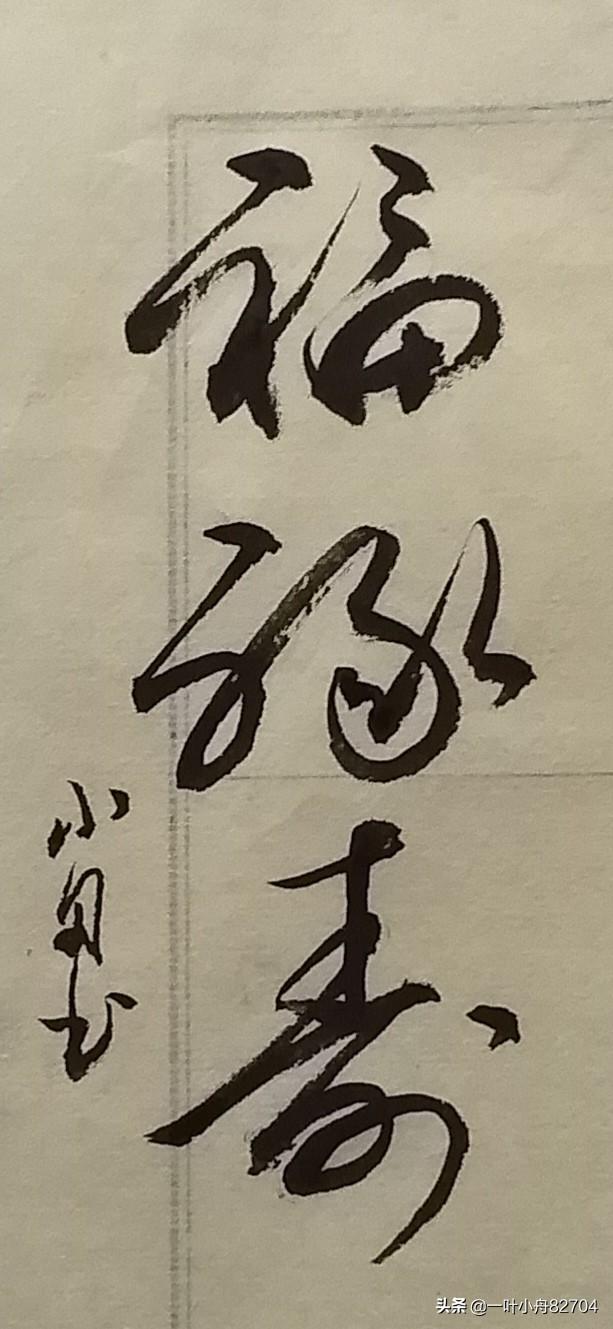 福禄寿
小舟书
头条 @一叶小舟82704